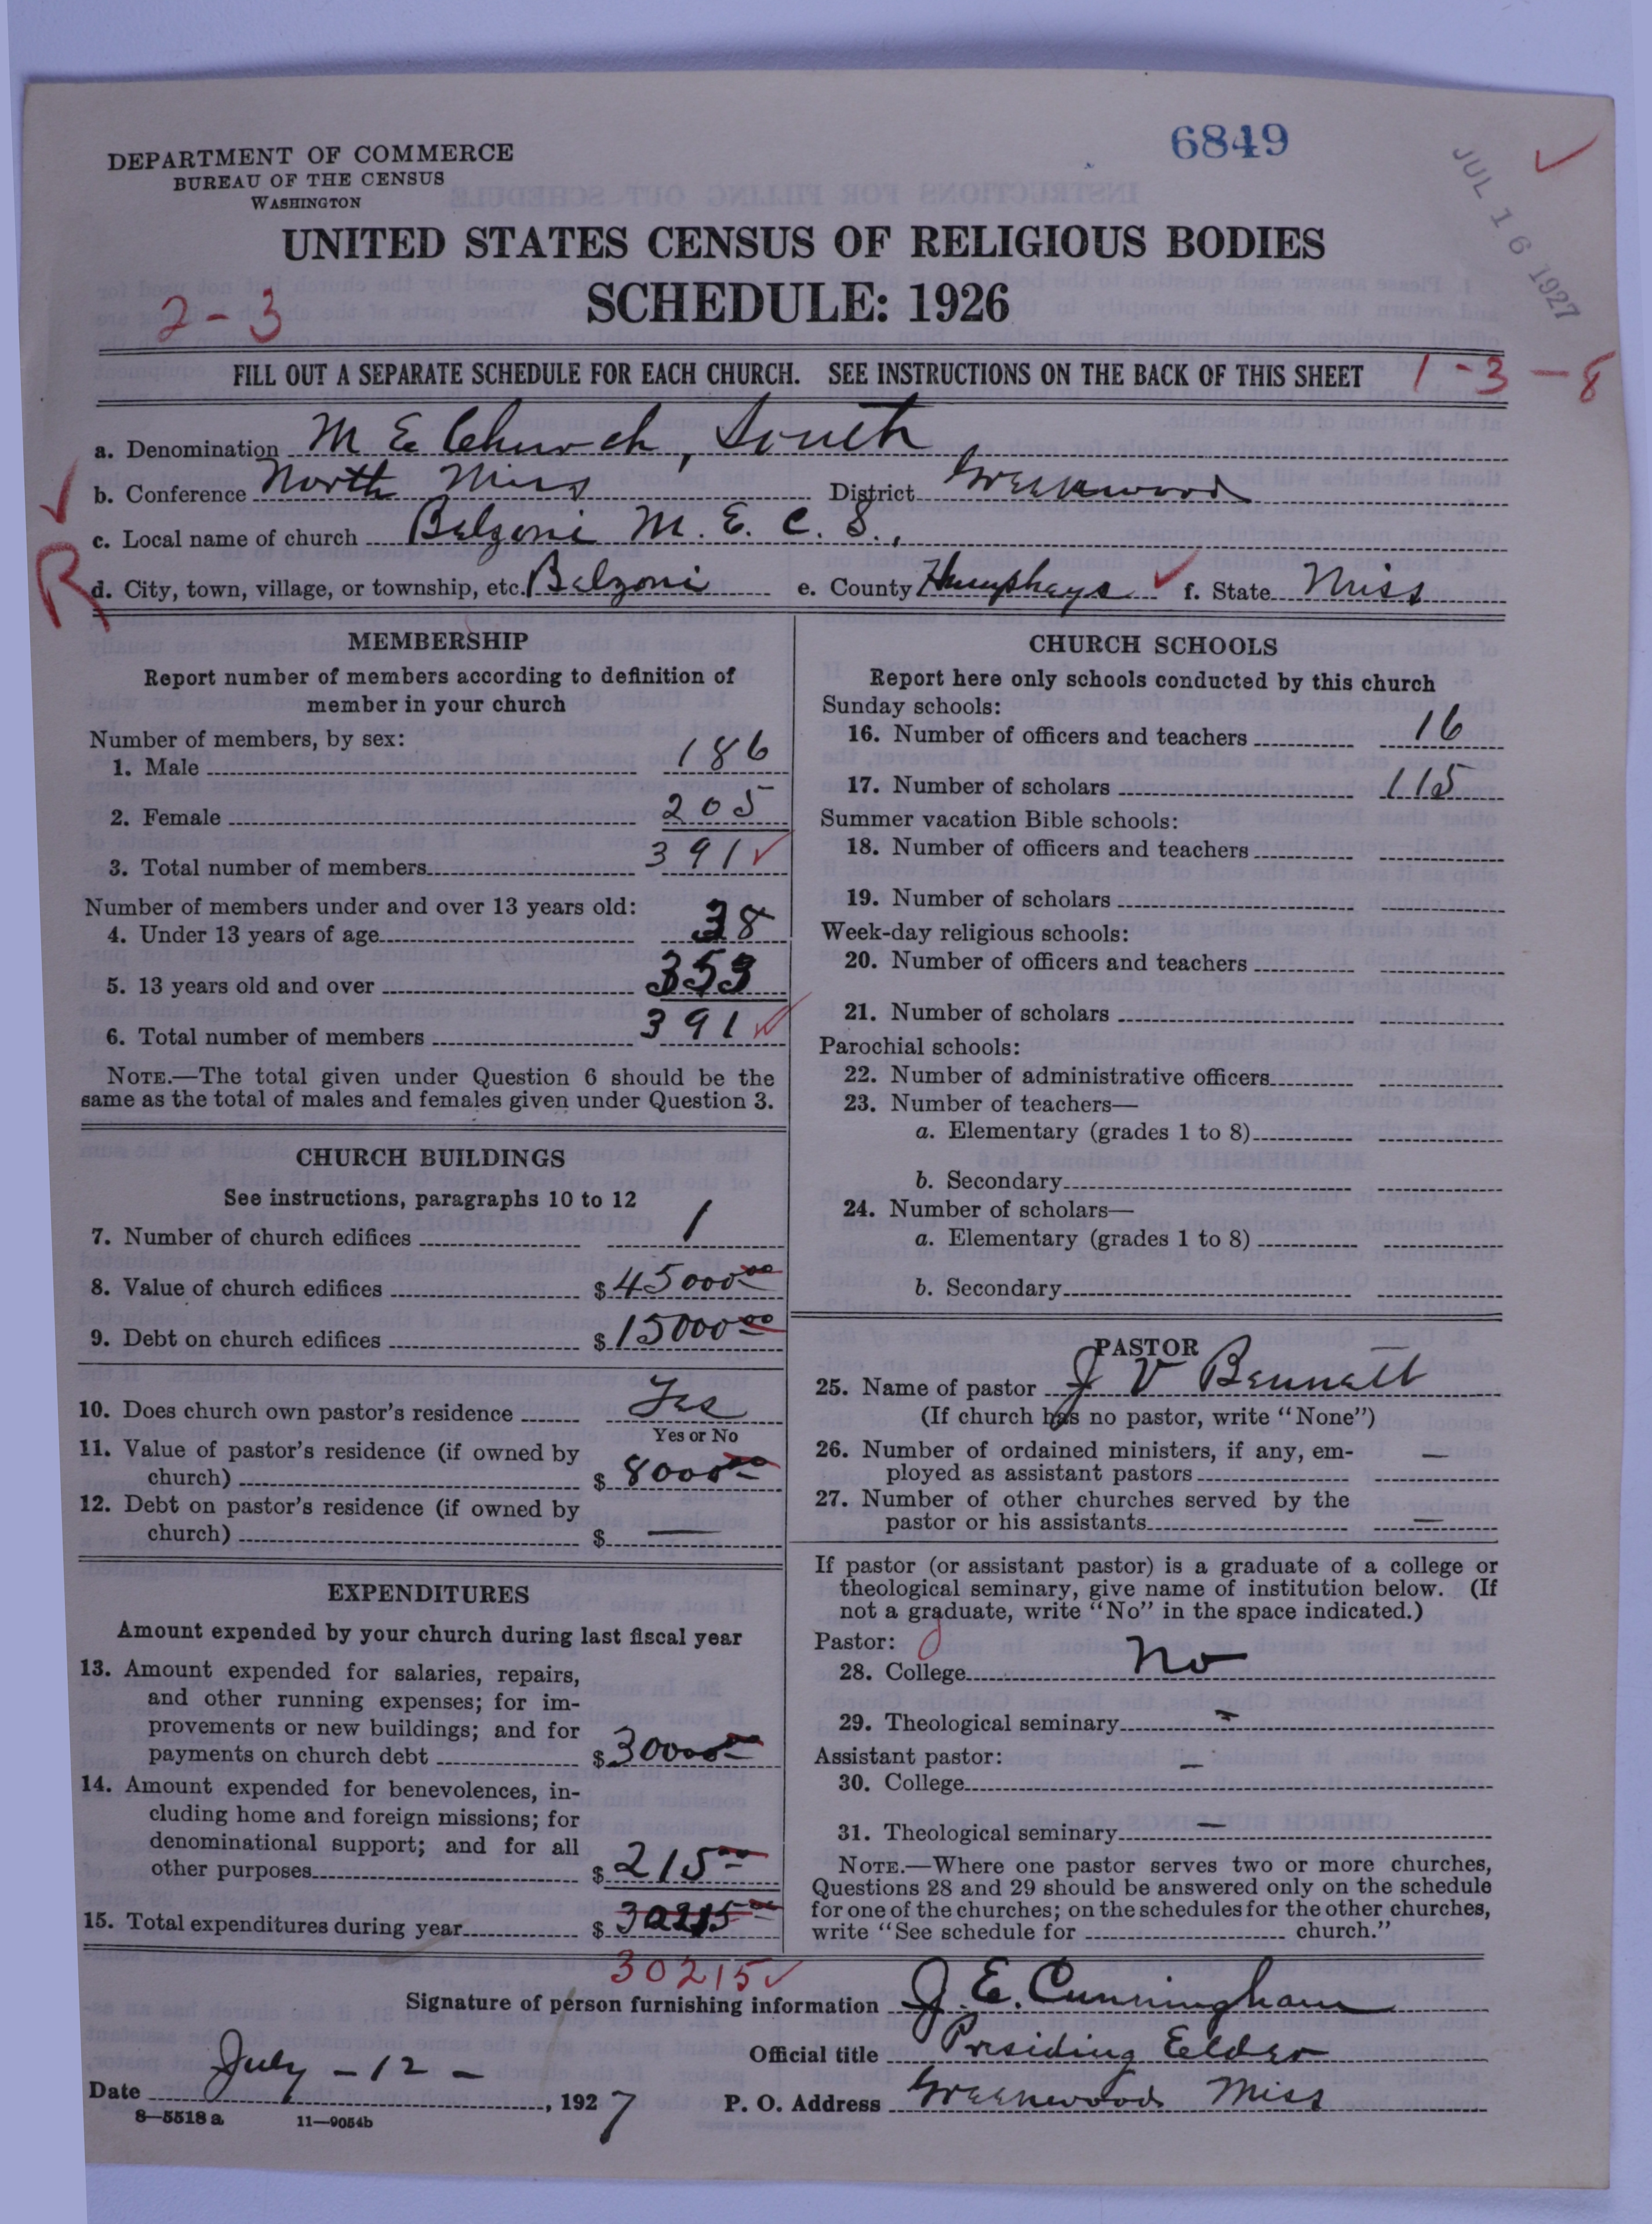 6849
JUL 16 1927
DEPARTMENT OF COMMERCE
BUREAU OF THE CENSUS
WASHINGTON
UNITED STATES CENSUS OF RELIGIOUS BODIES
SCHEDULE: 1926
2-3
FILL OUT A SEPARATE SCHEDULE FOR EACH CHURCH. SEE INSTRUCTIONS ON THE BACK OF THIS SHEET 1-3-8
a. Denomination M E Church, South
b. Conference North Miss District Greenwood
c. Local name of church Belzoni M. E. C. S.,
R
d. City, town, village, or township, etc. Belzoni e. County Humphreys f. State Miss
MEMBERSHIP
Report number of members according to definition of
member in your church
Number of members, by sex:
1. Male 186
2. Female 205
3. Total number of members 391
Number of members under and over 13 years old:
4. Under 13 years of age 38
5. 13 years old and over 353
6. Total number of members 391
NOTE.—The total given under Question 6 should be the
same as the total of males and females given under Question 3.
CHURCH BUILDINGS
See instructions, paragraphs 10 to 12
7. Number of church edifices 1
8. Value of church edifices $45000 00
9. Debt on church edifices $15000 00
10. Does church own pastor's residence Yes
Yes or No
11. Value of pastor's residence (if owned by
church) $8000 00
12. Debt on pastor's residence (if owned by
church) $ —
EXPENDITURES
Amount expended by your church during last fiscal year
13. Amount expended for salaries, repairs,
and other running expenses; for im-
provements or new buildings; and for
payments on church debt $30000 00
14. Amount expended for benevolences, in-
cluding home and foreign missions; for
denominational support; and for all
other purposes $215 00
15. Total expenditures during year $30215 00
30215
CHURCH SCHOOLS
Report here only schools conducted by this church
Sunday schools:
16. Number of officers and teachers 16
17. Number of scholars 115
Summer vacation Bible schools:
18. Number of officers and teachers
19. Number of scholars
Week-day religious schools:
20. Number of officers and teachers
21. Number of scholars
Parochial schools:
22. Number of administrative officers
23. Number of teachers—
a. Elementary (grades 1 to 8)
b. Secondary
24. Number of scholars—
a. Elementary (grades 1 to 8)
b. Secondary
PASTOR
25. Name of pastor J V Bennett
(If church has no pastor, write "None")
26. Number of ordained ministers, if any, em-
ployed as assistant pastors —
27. Number of other churches served by the
pastor or his assistants —
If pastor (or assistant pastor) is a graduate of a college or
theological seminary, give name of institution below. (If
not a graduate, write "No" in the space indicated.)
Pastor:
28. College No
29. Theological seminary -
Assistant pastor:
30. College —
31. Theological seminary —
NOTE.—Where one pastor serves two or more churches,
Questions 28 and 29 should be answered only on the schedule
for one of the churches; on the schedules for the other churches,
write "See schedule for church."
Signature of person furnishing information J. E. Cunningham
Official title Presiding Elder
Date July - 12 -, 1927 P. O. Address Greenwood Miss
8—5518 a 11—9054b